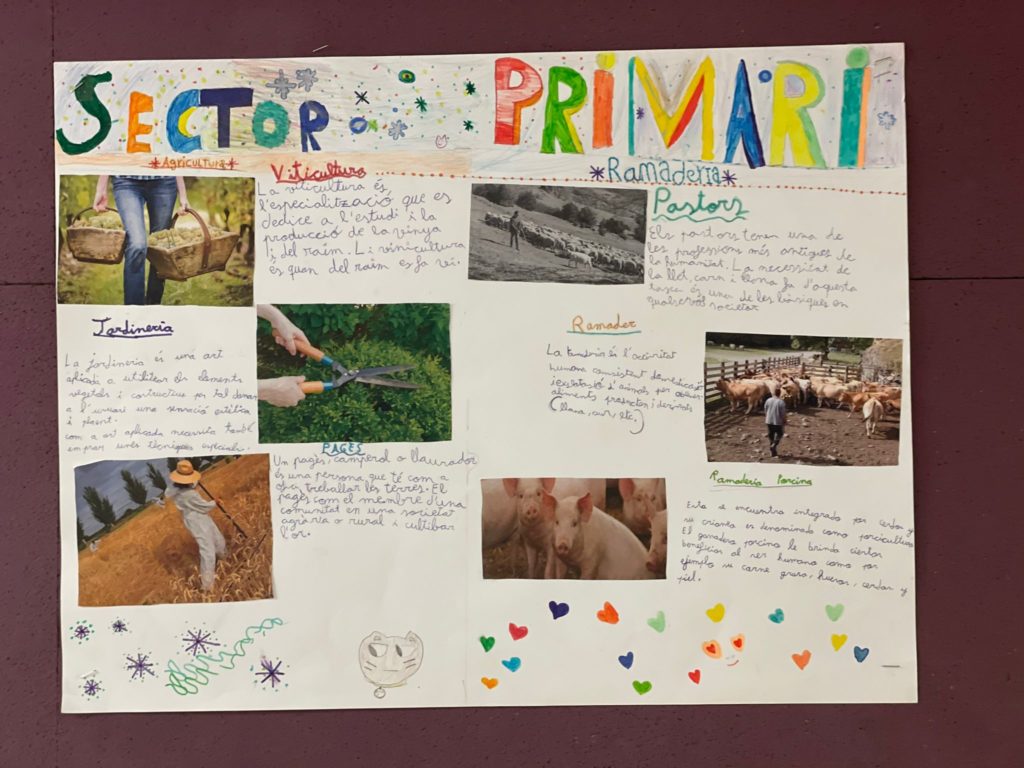 SECTOR PRIMARI
*AGRICULTURA*
Viticultura
La viticultura és
l'especialització que es
dedice a l'estudi i la
producció de la vinya
i del raïm. L
és quan del raïm es fa vi.
Jardineria
La jardineria és una art
aplicada a utilitzar els elements
vegetals i per tal donar
a l'usuari una sensació estética
i plaent.
com a art aplicada necessita també
emprar unes tècniques especials.
PAGÈS
Un pagès, camperol o llaurador
és una persona que té com a
treballar les terres. El
pagès com el membre d'una
comunitat en una societat
agrària o rural i cultibar
l'or.
*Ramaderia*
Pastors
Els pastors tenen una de
les professions més antigues de
la humanitat. La necessitat de
la llet, carn i llana fa d'aquesta
tasca és una de les bàsiques en
qualsevol societat
Ramader
La és l'activitat
humana consistent
i d'animals per
aliments i derivats
(llana, etc.)
Ramaderia Porcina
Esta se encuentra integrado por cerdos y
su crianza es denominado como porcicultura
El ganadero porcino le brinda ciertos
beneficios al ser humano como por
ejemplo su carne grasa, huesos, cerdas y
piel.